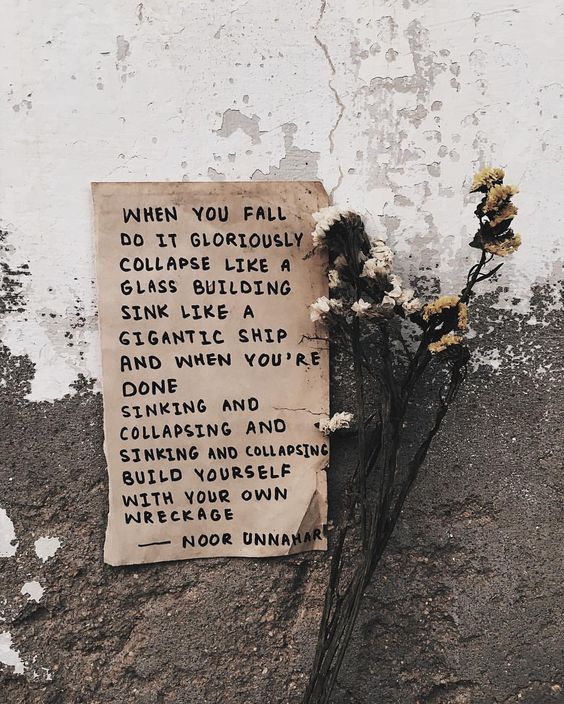 WHEN YOU FALL
DO IT GLORIOUSLY
COLLAPSE LIKE A
GLASS BUILDING
SINK LIKE A
GIGANTIC SHIP
AND WHEN YOU'RE
DONE
SINKING AND
COLLAPSING AND
SINKING AND COLLAPSING
BUILD YOURSELF
WITH YOUR OWN
WRECKAGE
— NOOR UNNAHAR